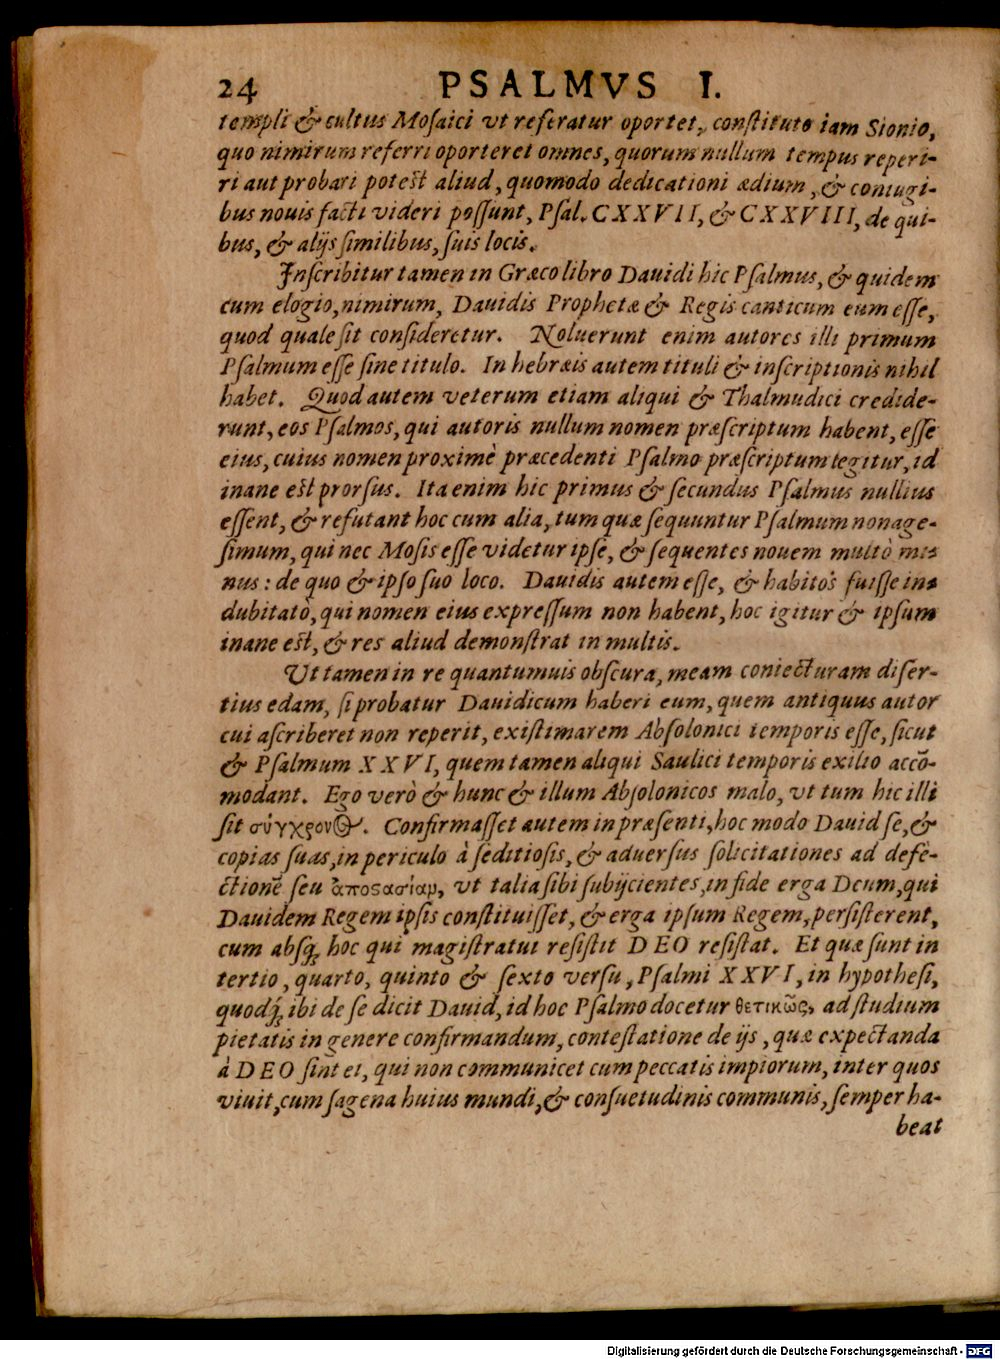 24 PSALMVS I.
templi & cultus Mosaici vt referatur oportet, constituto iam Sionio,
quo nimirum referri oporteret omnes, quorum nullum tempus reperi-
ri aut probari potest aliud, quomodo dedicationi ædium, & coniugi-
bus nouis facti videri possunt, Psal. CXXVII, & CXXVIII, de qui-
bus, & alijs similibus, suis locis.
Inscribitur tamen in Græco libro Dauidi hic Psalmus, & quidem
cum elogio, nimirum, Dauidis Prophetæ & Regis canticum eum esse,
quod quale sit consideretur. Noluerunt enim autores illi primum
Psalmum esse sine titulo. In hebræis autem tituli & inscriptionis nihil
habet. Quod autem veterum etiam aliqui & Thalmudici credide-
runt, eos Psalmos, qui autoris nullum nomen præscriptum habent, esse
eius, cuius nomen proximè præcedenti Psalmo præscriptum legitur, id
inane est prorsus. Ita enim hic primus & secundus Psalmus nullius
essent, & refutant hoc cum alia, tum quæ sequuntur Psalmum nonage-
simum, qui nec Mosis esse videtur ipse, & sequentes nouem multò mi-
nus: de quo & ipso suo loco. Dauidis autem esse, & habitos fuisse in-
dubitatò, qui nomen eius expressum non habent, hoc igitur & ipsum
inane est, & res aliud demonstrat in multis.
Ut tamen in re quantumuis obscura, meam coniecturam diser-
tius edam, si probatur Dauidicum haberi eum, quem antiquus autor
cui ascriberet non reperit, existimarem Absolonici temporis esse, sicut
& Psalmum XXVI, quem tamen aliqui Saulici temporis exilio accō-
modant. Ego verò & hunc & illum Absolonicos malo, vt tum hic illi
sit σύγχρονος. Confirmasset autem in præsenti, hoc modo Dauid se, &
copias suas, in periculo à seditiosis, & aduersus solicitationes ad defe-
ctionē seu ἀποστασίαμ, vt talia sibi subijcientes, in fide erga Deum, qui
Dauidem Regem ipsis constituisset, & erga ipsum Regem, persisterent,
cum absq; hoc qui magistratui resistit DEO resistat. Et quæ sunt in
tertio, quarto, quinto & sexto versu, Psalmi XXVI, in hypothesi,
quodq; ibi de se dicit Dauid, id hoc Psalmo docetur θετικῶς, ad studium
pietatis in genere confirmandum, contestatione de ijs, quæ expectanda
à DEO sint ei, qui non communicet cum peccatis impiorum, inter quos
viuit, cum sagena huius mundi, & consuetudinis communis, semper ha-
beat
Digitalisierung gefördert durch die Deutsche Forschungsgemeinschaft - DFG